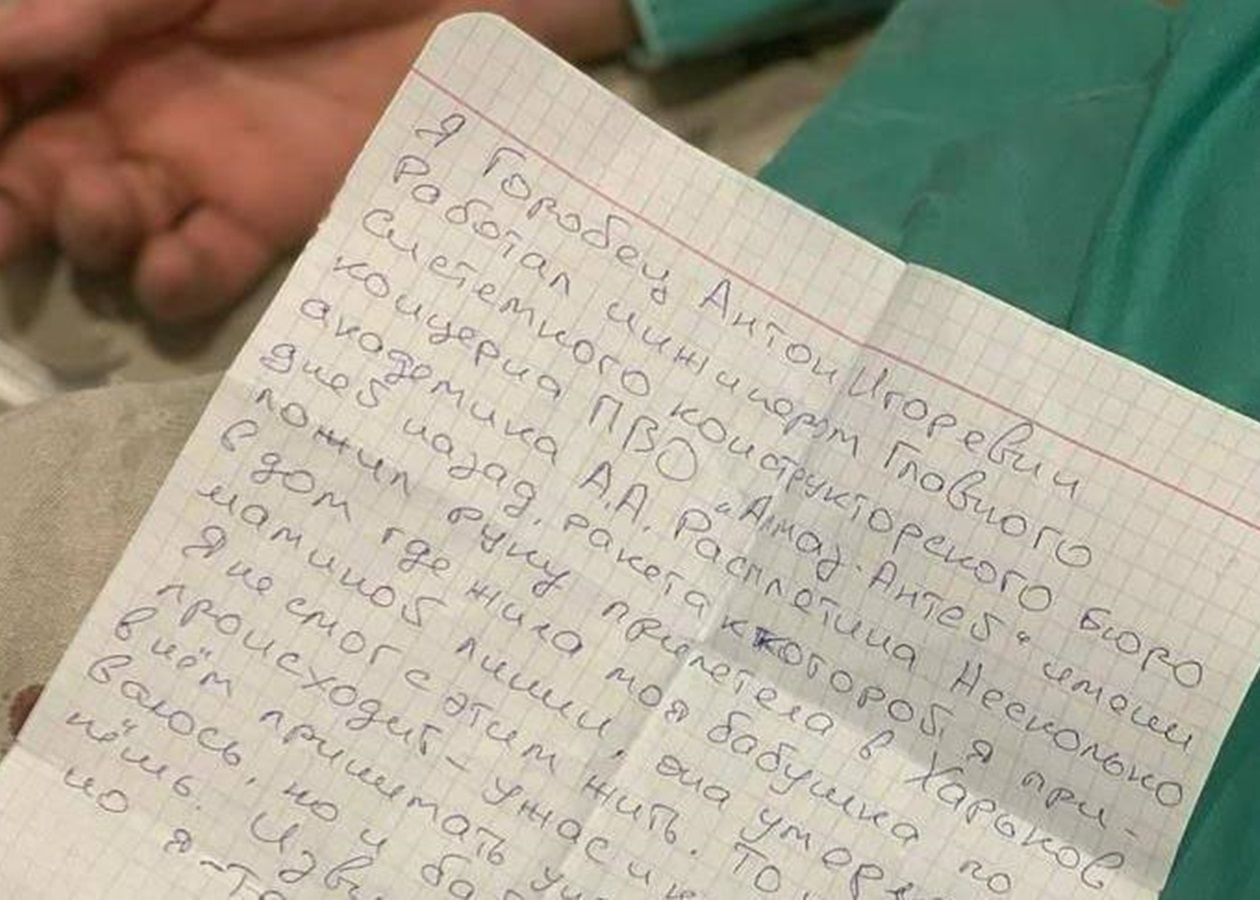 Я Горобец Антон Игоревич
Работал инжинером Главного
системного конструкторского бюро
концерна ПВО „Алмаз-Антей“ имени
академика А.А. Расплетина Несколько
дней назад, ракета к которой я при-
ложил руку прилетела в Харьков
в дом где жила моя бабушка по
маминой линии, она умерла
Я не смог с этим жить. То
происходит - ужас и
в нём принимать
ваюсь, но и
нёшь.
но я-то